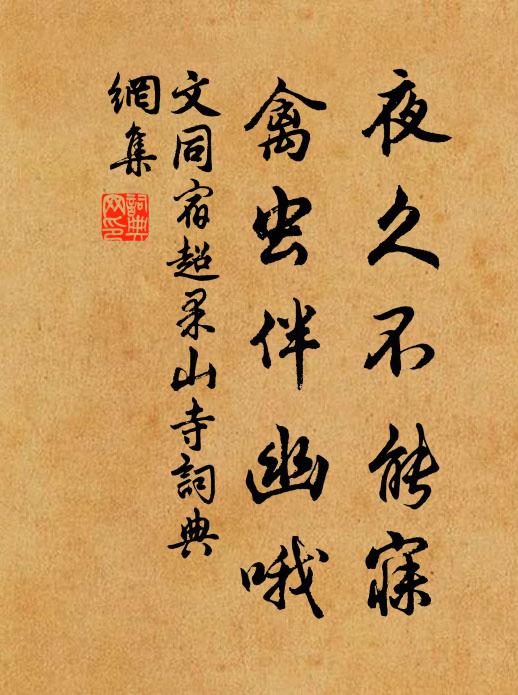 夜久不能寐
禽虫伴幽哦
文同宿超果山寺詞典
網集
詞典网印